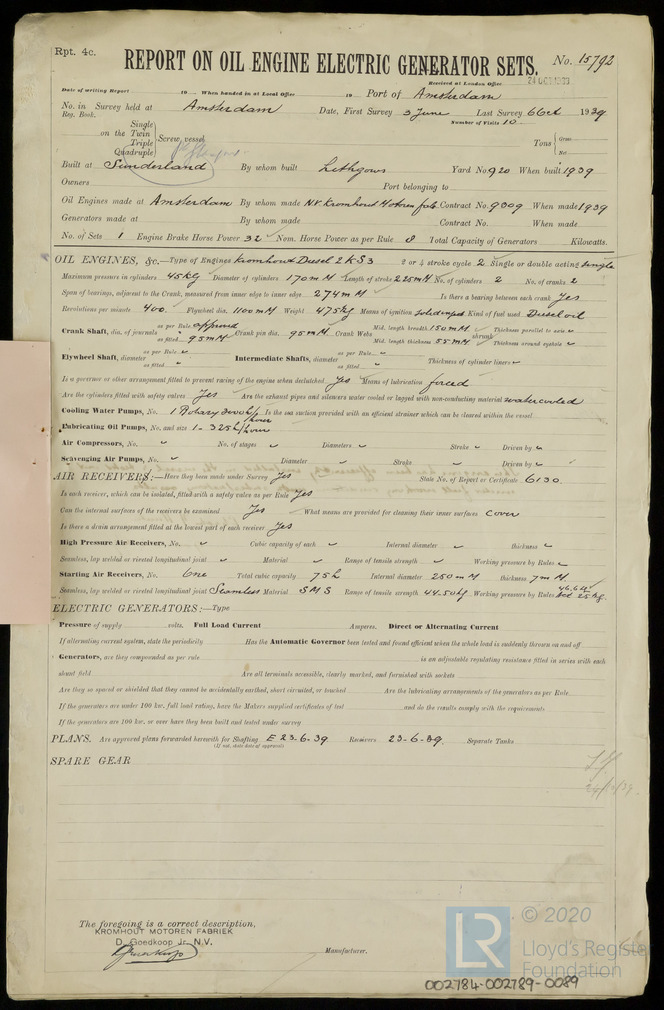 Rpt. 4c.
REPORT ON OIL ENGINE ELECTRIC GENERATOR SETS.
No. 15792
Received at London Office
Date of writing Report 19 When handed in at Local Office 19 Port of Amsterdam
No. in Survey held at Amsterdam Date, First Survey 3 June Last Survey 6 Oct 1939
Reg. Book. Number of Visits 10
Single
on the Twin
Triple
Quadruple
Screw vessel
Tons Gross
Net
Built at Sunderland By whom built Lithgows Yard No. 920 When built 1939
Owners Port belonging to
Oil Engines made at Amsterdam By whom made N.V. Kromhout Motoren Fab. Contract No. 9309 When made 1939
Generators made at By whom made Contract No. When made
No. of Sets 1 Engine Brake Horse Power 32 Nom. Horse Power as per Rule 8 Total Capacity of Generators Kilowatts.
OIL ENGINES, &c.—Type of Engines Kromhout Diesel 2 KS3 2 or 4 stroke cycle 2 Single or double acting single
Maximum pressure in cylinders 45 kg Diameter of cylinders 170 mM Length of stroke 225 mM No. of cylinders 2 No. of cranks 2
Span of bearings, adjacent to the Crank, measured from inner edge to inner edge 274 mM Is there a bearing between each crank Yes
Revolutions per minute 400 Flywheel dia. 1100 mM Weight 475 kg Means of ignition solid inject Kind of fuel used Diesel oil
Crank Shaft, dia. of journals as per Rule approved as fitted 95 mM Crank pin dia. 95 mM Crank Webs Mid. length breadth 150 mM Mid. length thickness 55 mM shrunk Thickness parallel to axis Thickness around eyehole
Flywheel Shaft, diameter as per Rule as fitted Intermediate Shafts, diameter as per Rule as fitted Thickness of cylinder liners
Is a governor or other arrangement fitted to prevent racing of the engine when declutched Yes Means of lubrication forced
Are the cylinders fitted with safety valves Yes Are the exhaust pipes and silencers water cooled or lagged with non-conducting material watercooled
Cooling Water Pumps, No. 1 Rotary 3000 L/hour Is the sea suction provided with an efficient strainer which can be cleared within the vessel
Lubricating Oil Pumps, No. and size 1 - 325 L/hour
Air Compressors, No. No. of stages Diameters Stroke Driven by
Scavenging Air Pumps, No. Diameter Stroke Driven by
AIR RECEIVERS:—Have they been made under Survey Yes State No. of Report or Certificate 6130.
Is each receiver, which can be isolated, fitted with a safety valve as per Rule Yes
Can the internal surfaces of the receivers be examined Yes What means are provided for cleaning their inner surfaces cover
Is there a drain arrangement fitted at the lowest part of each receiver Yes
High Pressure Air Receivers, No. Cubic capacity of each Internal diameter thickness
Seamless, lap welded or riveted longitudinal joint Material Range of tensile strength Working pressure by Rules
Starting Air Receivers, No. One Total cubic capacity 75 L Internal diameter 250 mM thickness 7 mM
Seamless, lap welded or riveted longitudinal joint Seamless Material S M S Range of tensile strength 44.50 kg Working pressure by Rules 25 kg.
ELECTRIC GENERATORS:—Type
Pressure of supply volts. Full Load Current Amperes. Direct or Alternating Current
If alternating current system, state the periodicity Has the Automatic Governor been tested and found efficient when the whole load is suddenly thrown on and off
Generators, are they compounded as per rule is an adjustable regulating resistance fitted in series with each
shunt field Are all terminals accessible, clearly marked, and furnished with sockets
Are they so spaced or shielded that they cannot be accidentally earthed, short circuited, or touched Are the lubricating arrangements of the generators as per Rule
If the generators are under 100 kw. full load rating, have the Makers supplied certificates of test and do the results comply with the requirements
If the generators are 100 kw. or over have they been built and tested under survey
PLANS. Are approved plans forwarded herewith for Shafting E 23-6-39 Receivers 23-6-39. Separate Tanks
(If not, state date of approval)
SPARE GEAR
The foregoing is a correct description,
KROMHOUT MOTOREN FABRIEK
D. Goedkoop Jr. N.V.
Manufacturer.
© 2020
LR
Lloyd's Register
Foundation
002784-002789-0089